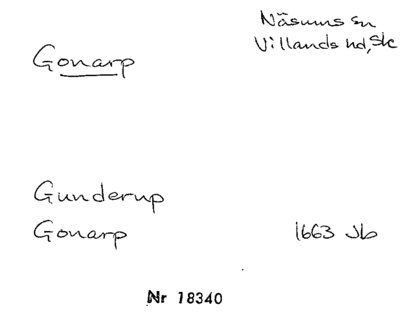 Näsums sn
Villands hd, Sk
Gonarp
Gunderup
Gonarp 1663 Jb
Nr 18340